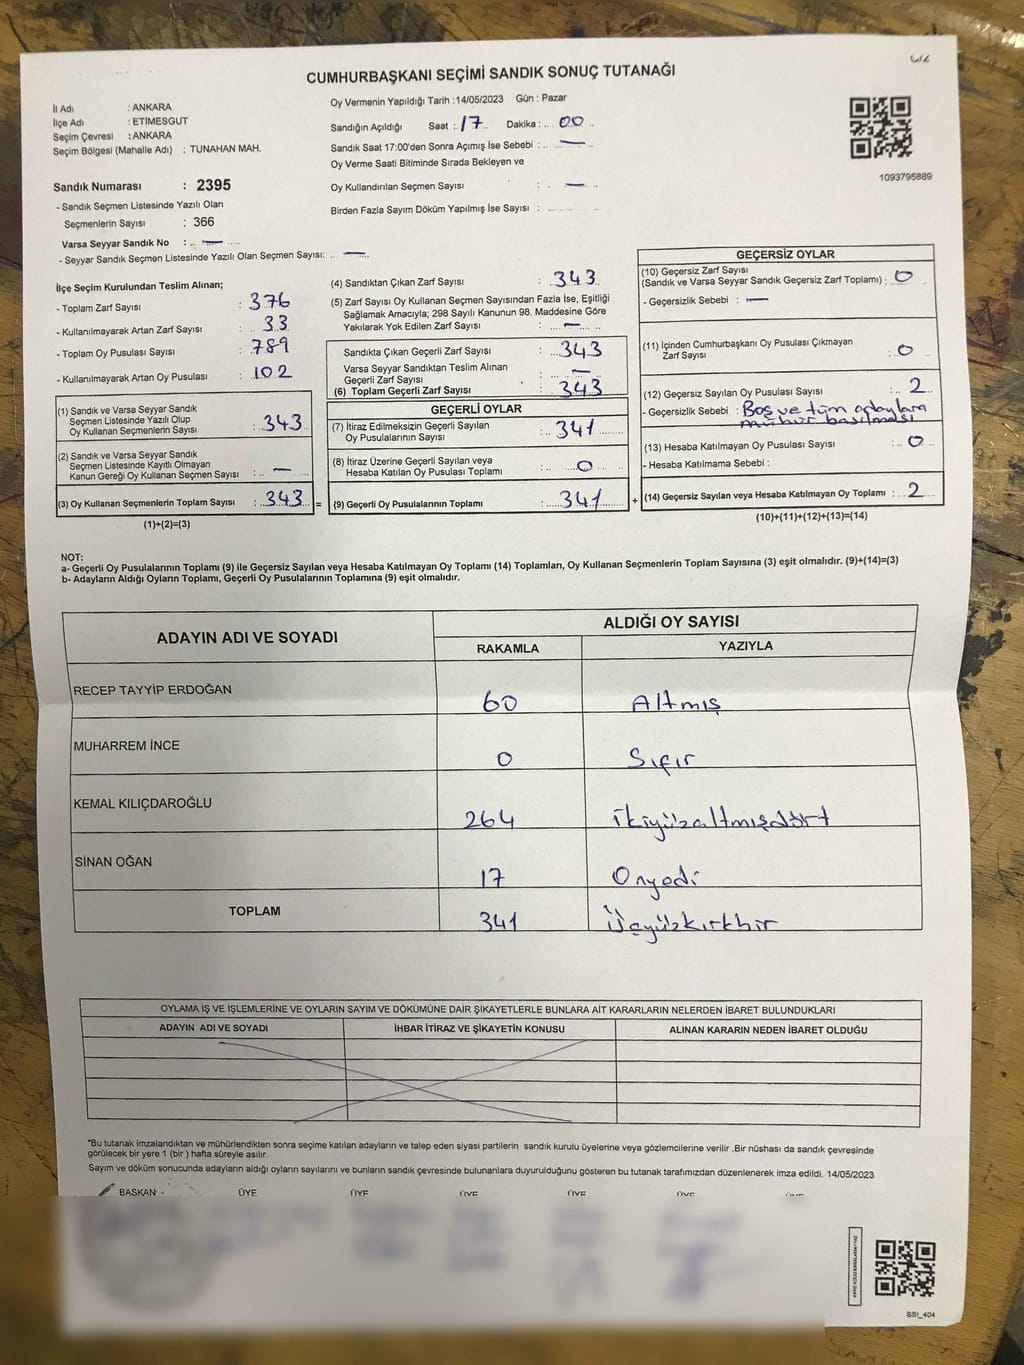 CUMHURBAŞKANI SEÇİMİ SANDIK SONUÇ TUTANAĞI
İl Adı : ANKARA
İlçe Adı : ETİMESGUT
Seçim Çevresi : ANKARA
Seçim Bölgesi (Mahalle Adı) : TUNAHAN MAH.
Sandık Numarası : 2395
- Sandık Seçmen Listesinde Yazılı Olan
Seçmenlerin Sayısı : 366
Varsa Seyyar Sandık No : —
- Seyyar Sandık Seçmen Listesinde Yazılı Olan Seçmen Sayısı: —
Oy Vermenin Yapıldığı Tarih :14/05/2023 Gün : Pazar
Sandığın Açıldığı Saat : 17 Dakika : 00
Sandık Saat 17:00'den Sonra Açımış İse Sebebi : —
Oy Verme Saati Bitiminde Sırada Bekleyen ve
Oy Kullandırılan Seçmen Sayısı : —
Birden Fazla Sayım Döküm Yapılmış İse Sayısı :
1093795889
İlçe Seçim Kurulundan Teslim Alınan;
- Toplam Zarf Sayısı : 376
- Kullanılmayarak Artan Zarf Sayısı : 33
- Toplam Oy Pusulası Sayısı : 789
- Kullanılmayarak Artan Oy Pusulası : 102
(1) Sandık ve Varsa Seyyar Sandık
Seçmen Listesinde Yazılı Olup
Oy Kullanan Seçmenlerin Sayısı : 343
(2) Sandık ve Varsa Seyyar Sandık
Seçmen Listesinde Kayıtlı Olmayan
Kanun Gereği Oy Kullanan Seçmen Sayısı : —
(3) Oy Kullanan Seçmenlerin Toplam Sayısı : 343 =
(1)+(2)=(3)
(4) Sandıktan Çıkan Zarf Sayısı : 343
(5) Zarf Sayısı Oy Kullanan Seçmen Sayısından Fazla İse, Eşitliği
Sağlamak Amacıyla; 298 Sayılı Kanunun 98. Maddesine Göre
Yakılarak Yok Edilen Zarf Sayısı : —
Sandıkta Çıkan Geçerli Zarf Sayısı : 343
Varsa Seyyar Sandıktan Teslim Alınan
Geçerli Zarf Sayısı : —
(6) Toplam Geçerli Zarf Sayısı : 343
GEÇERLİ OYLAR
(7) İtiraz Edilmeksizin Geçerli Sayılan
Oy Pusulalarının Sayısı : 341
(8) İtiraz Üzerine Geçerli Sayılan veya
Hesaba Katılan Oy Pusulası Toplamı : 0
(9) Geçerli Oy Pusulalarının Toplamı : 341 +
GEÇERSİZ OYLAR
(10) Geçersiz Zarf Sayısı
(Sandık ve Varsa Seyyar Sandık Geçersiz Zarf Toplamı) : 0
- Geçersizlik Sebebi : —
(11) İçinden Cumhurbaşkanı Oy Pusulası Çıkmayan
Zarf Sayısı : 0
(12) Geçersiz Sayılan Oy Pusulası Sayısı : 2
- Geçersizlik Sebebi : Boş ve tüm adaylara
mühür basılması
(13) Hesaba Katılmayan Oy Pusulası Sayısı : 0
- Hesaba Katılmama Sebebi :
(14) Geçersiz Sayılan veya Hesaba Katılmayan Oy Toplamı : 2
(10)+(11)+(12)+(13)=(14)
NOT:
a- Geçerli Oy Pusulalarının Toplamı (9) ile Geçersiz Sayılan veya Hesaba Katılmayan Oy Toplamı (14) Toplamları, Oy Kullanan Seçmenlerin Toplam Sayısına (3) eşit olmalıdır. (9)+(14)=(3)
b- Adayların Aldığı Oyların Toplamı, Geçerli Oy Pusulalarının Toplamına (9) eşit olmalıdır.
ADAYIN ADI VE SOYADI ALDIĞI OY SAYISI
RAKAMLA YAZIYLA
RECEP TAYYİP ERDOĞAN 60 Altmış
MUHARREM İNCE 0 Sıfır
KEMAL KILIÇDAROĞLU 264 İkiyüzaltmışdört
SİNAN OĞAN 17 Onyedi
TOPLAM 341 Üçyüzkırkbir
OYLAMA İŞ VE İŞLEMLERİNE VE OYLARIN SAYIM VE DÖKÜMÜNE DAİR ŞİKAYETLERLE BUNLARA AİT KARARLARIN NELERDEN İBARET BULUNDUKLARI
ADAYIN ADI VE SOYADI İHBAR İTİRAZ VE ŞİKAYETİN KONUSU ALINAN KARARIN NEDEN İBARET OLDUĞU
"Bu tutanak imzalandıktan ve mühürlendikten sonra seçime katılan adayların ve talep eden siyasi partilerin sandık kurulu üyelerine veya gözlemcilerine verilir .Bir nüshası da sandık çevresinde
görülecek bir yere 1 (bir ) hafta süreyle asılır.
Sayım ve döküm sonucunda adayların aldığı oyların sayılarını ve bunların sandık çevresinde bulunanlara duyurulduğunu gösteren bu tutanak tarafımızdan düzenlenerek imza edildi. 14/05/2023
BAŞKAN ÜYE ÜYE ÜYE ÜYE ÜYE ÜYE
SSI_404